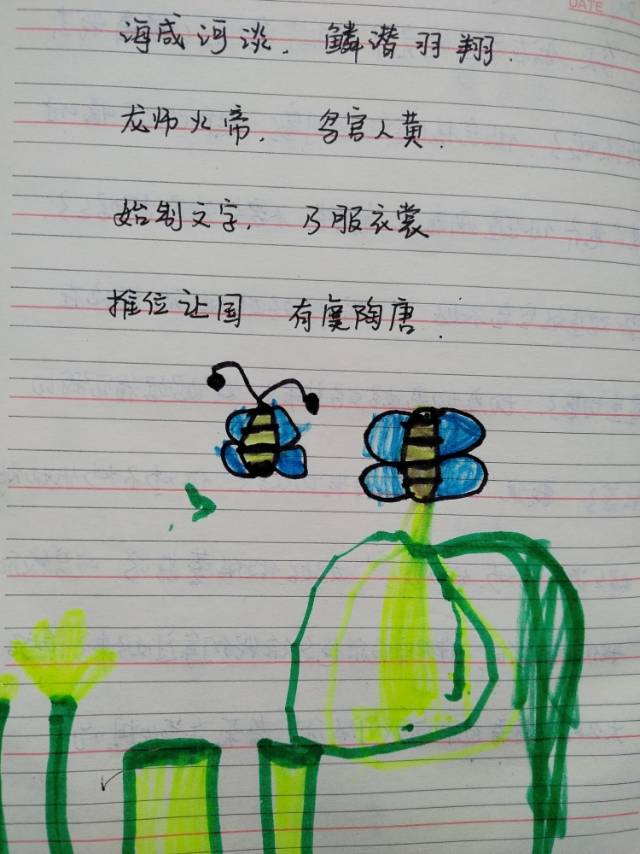 DATE
海咸河淡. 鳞潜羽翔.
龙师火帝, 鸟官人黄.
始制文字, 乃服衣裳
推位让国 有虞陶唐.